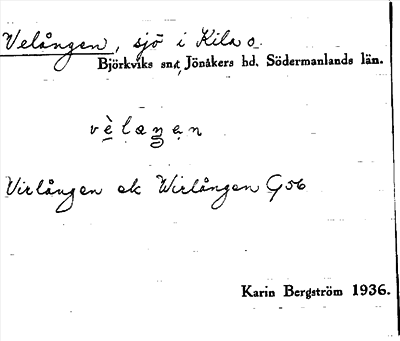 Velången, sjö i Kila o.
Björkviks snr, Jönåkers hd. Södermanlands län.
vèlaŋən
Virlången ek Wirlången G56
Karin Bergström 1936.